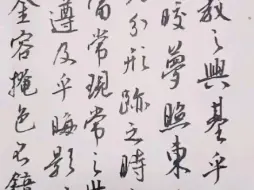 教之興基乎
皎夢照東
分形跡之時
當常現常之世
遵及乎晦影
金容掩色不鏡